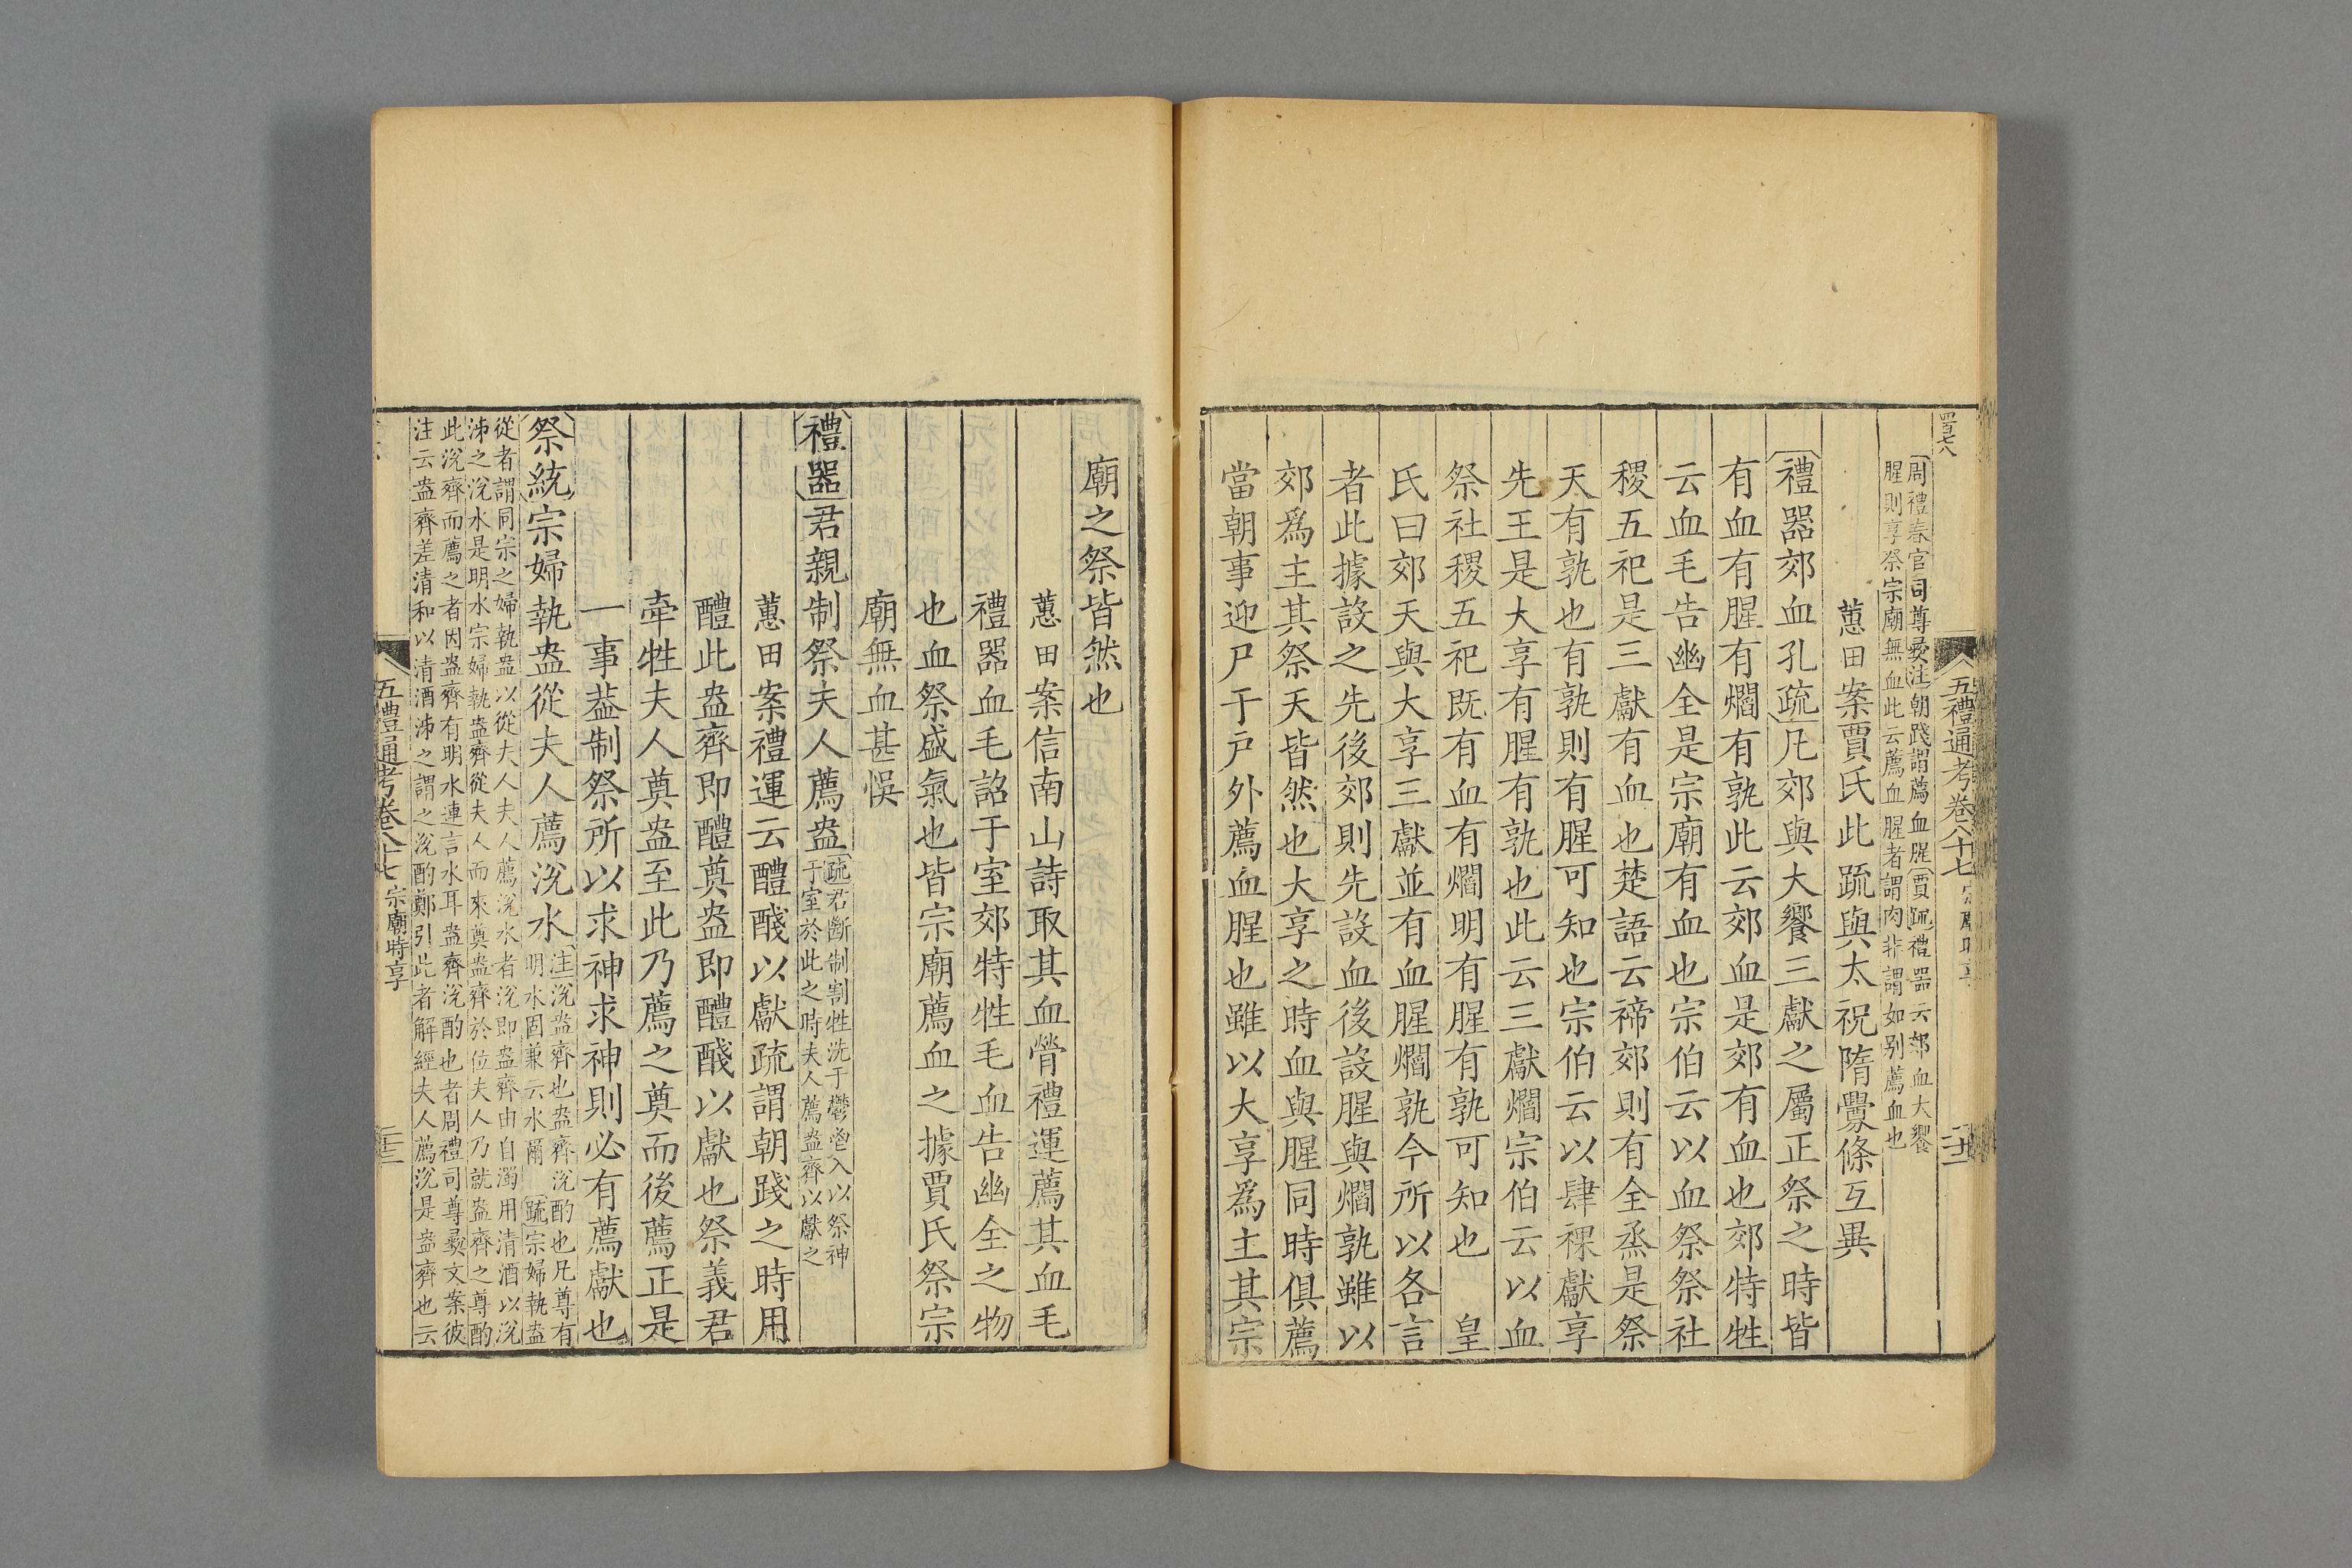 五禮通考卷八十七
周禮春官司尊彝注朝踐謂薦血腥賈疏禮器云郊血大饗
腥則享祭宗廟無血此云薦血腥者謂肉非謂如别薦血也
蕙田案賈氏此疏與太祝隋釁條互異
禮器郊血孔疏凡郊與大饗三獻之屬正祭之時皆
有血有腥有爓有孰此云郊血是郊有血也郊特牲
云血毛告幽全是宗廟有血也宗伯云以血祭祭社
稷五祀是三獻有血也楚語云禘郊則有全烝是祭
天有孰也有孰則有腥可知也宗伯云以肆祼獻享
先王是大享有腥有孰也此云三獻爓宗伯云以血
祭社稷五祀既有血有爓明有腥有孰可知也　皇
氏曰郊天與大享三獻並有血腥爓孰今所以各言
者此據設之先後郊則先設血後設腥與爓孰雖以
郊爲主其祭天皆然也大享之時血與腥同時俱薦
當朝事迎尸于戸外薦血腥也雖以大享爲主其宗
廟之祭皆然也
蕙田案信南山詩取其血膋禮運薦其血毛
禮器血毛詔于室郊特牲毛血告幽全之物
也血祭盛氣也皆宗廟薦血之據賈氏祭宗
廟無血甚悞
禮器君親制祭夫人薦盎疏君斷制割牲洗于鬱鬯入以祭神
于室於此之時夫人薦盎齊以獻之
蕙田案禮運云醴醆以獻疏謂朝踐之時用
醴此盎齊即醴奠盎即醴醆以獻也祭義君
牽牲夫人奠盎至此乃薦之奠而後薦正是
一事葢制祭所以求神求神則必有薦獻也
祭統宗婦執盎從夫人薦涗水注涗盎齊也盎齊涗酌也凡尊有
明水固兼云水爾　疏宗婦執盎
從者謂同宗之婦執盎以從夫人夫人薦涗水者涗即盎齊由自濁用清酒以涗
沸之涗水是明水宗婦執盎齊從夫人而來奠盎齊於位夫人乃就盎齊之尊酌
此涗齊而薦之者因盎齊有明水連言水耳盎齊涗酌也者周禮司尊彝文案彼
注云盎齊差清和以清酒沸之謂之涗酌鄭引此者解經夫人薦涗是盎齊也云
五禮通考卷八十七　宗廟時享